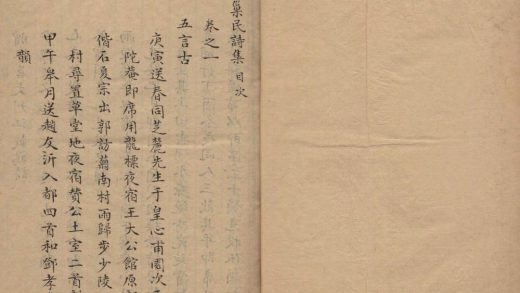 巢民詩集目次
卷之一
五言古
庚寅送春同芝麓先生于皇心甫園次
陀菴即席用龍標夜宿王大公館原
偕石夏宗出郭訪菊南村雨歸步少陵
村尋置草堂地夜宿贊公土室二首
韻
甲午皋月送趙友沂入都四首和鄧孝